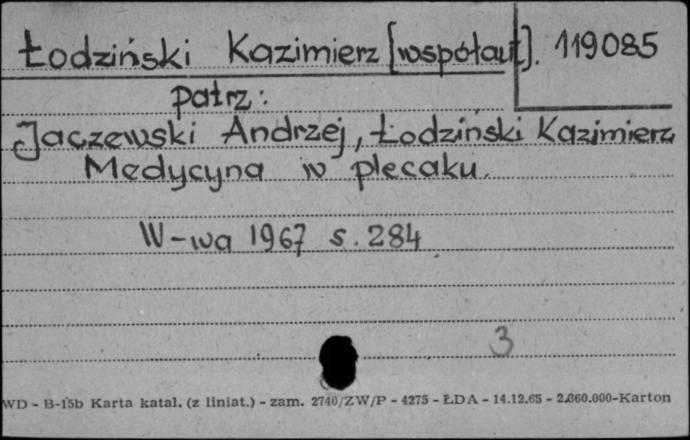 Łodziński Kazimierz [współaut]. 119085
patrz:
Jaczewski Andrzej, Łodziński Kazimierz
Medycyna w plecaku.
W-wa 1967 s. 284
3
WD - B-15b Karta katal. (z liniat.) - zam. 2740/ZW/P - 4275 - ŁDA - 14.12.65 - 2.860.000-Karton